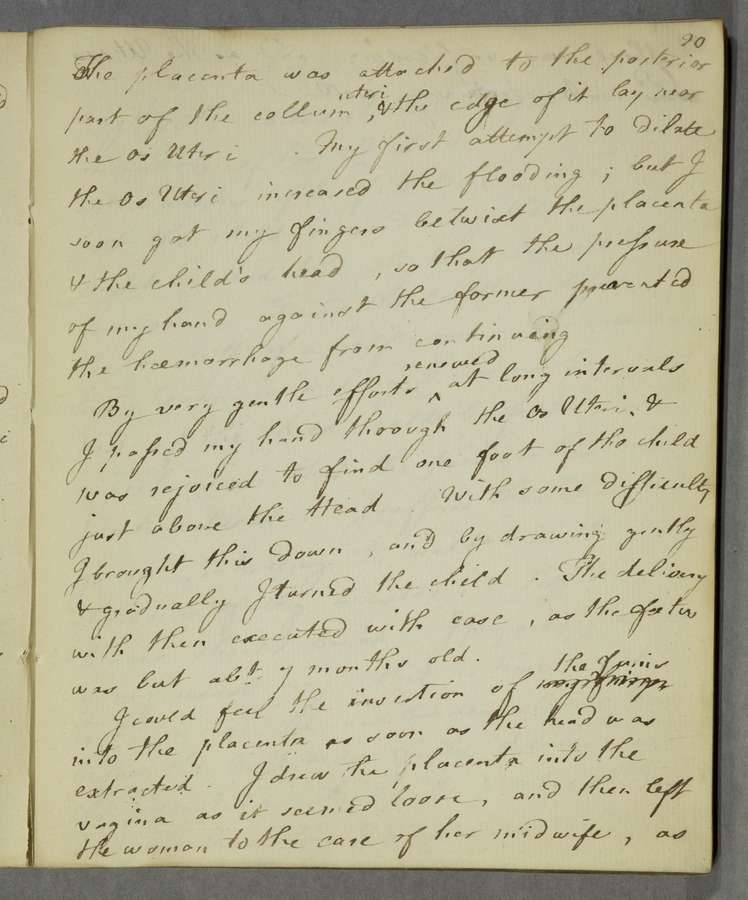 20
The placenta was attached to the posterior
part of the collum uteri, & the edge of it lay near
the Os Uteri . My first attempt to dilate
the Os Uteri increased the flooding ; but I
soon got my fingers betwixt the placenta
& the child's head , so that the pressure
of my hand against the former prevented
the hæmorrhage from continueing
By very gentle efforts renewed at long intervals
I passed my hand through the Os Uteri, &
was rejoiced to find one foot of the child
just above the Head . With some difficulty
I brought this down , and by drawing gently
& gradually I turned the child . The delivery
with then executed with ease , as the foetus
was but abt. 7 months old .
I could feel the insertion of the Funis
into the placenta as soon as the head was
extracted . I drew the placenta into the
vagina as it seemed loose, and then left
the woman to the care of her midwife , as